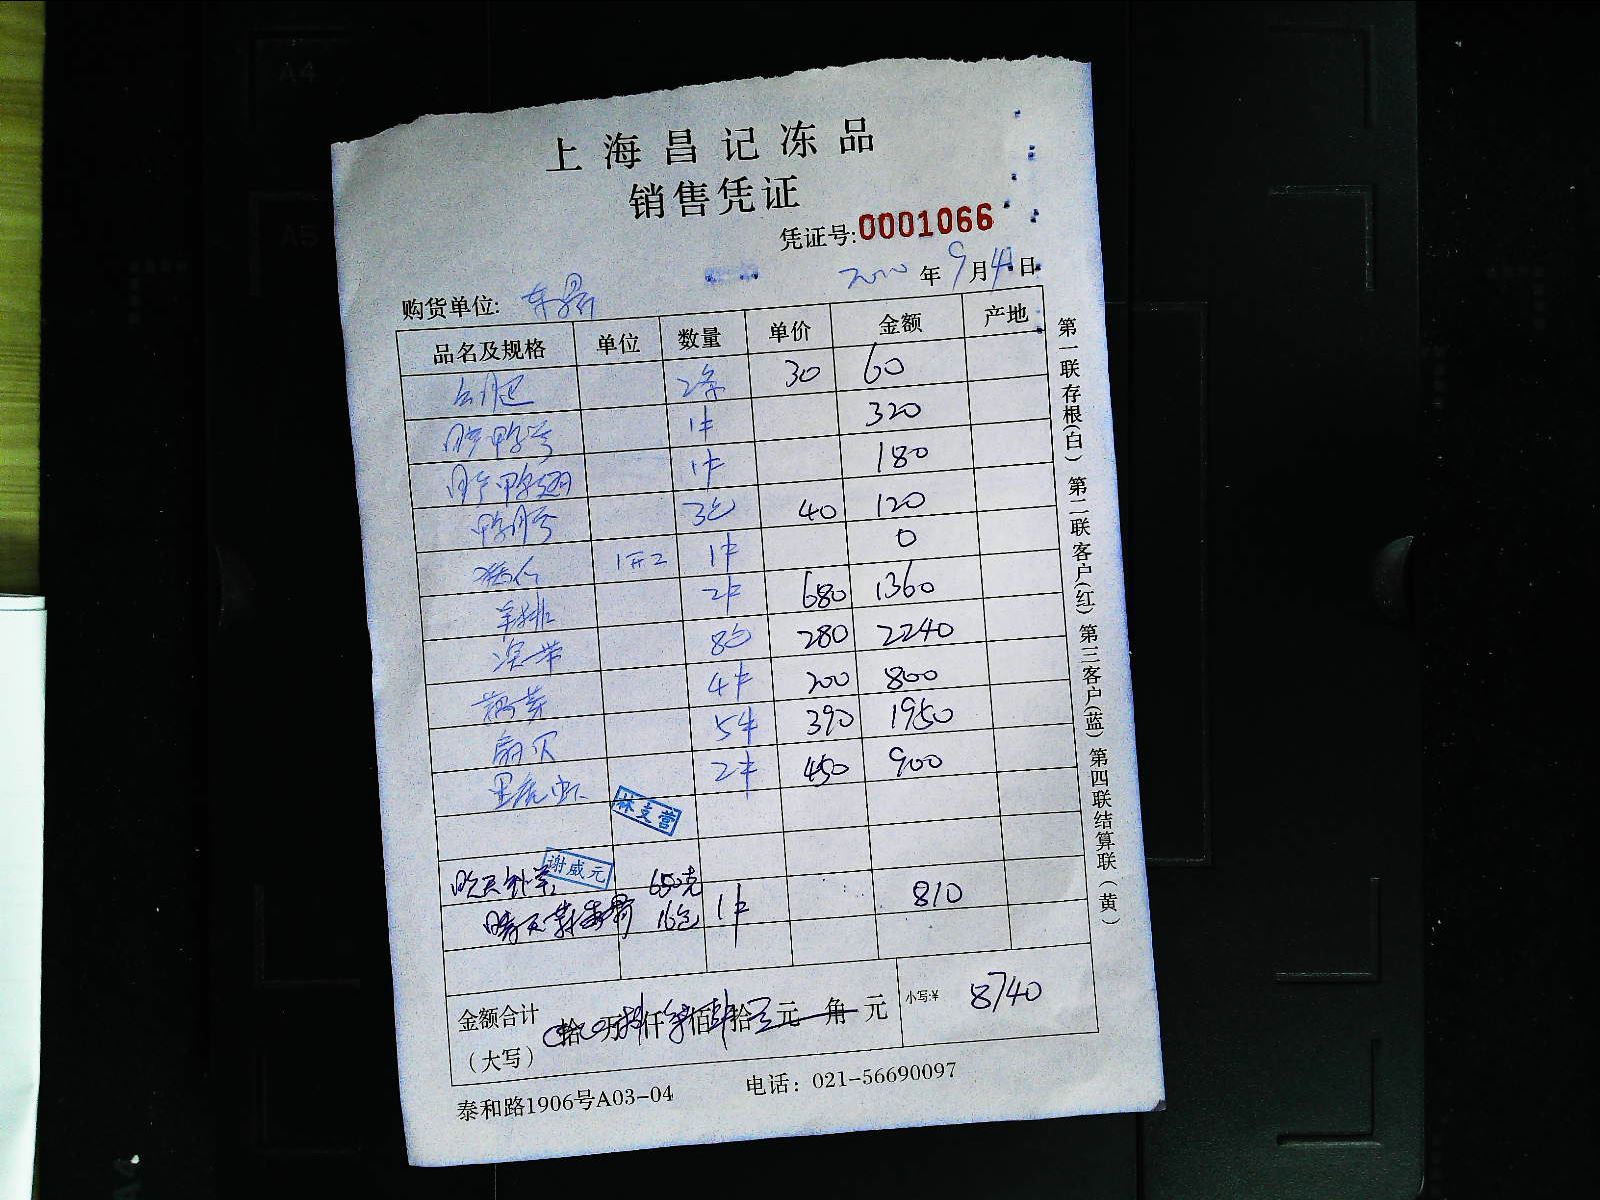 上海昌记冻品
销售凭证
凭证号:0001066
年9月4日
购货单位:
品名及规格 单位 数量 单价 金额 产地
2条 30 60
1卡 320
1卡 180
3包 40 120
1开2 1卡 0
羊排 2卡 680 1360
8包 280 2240
4卡 200 800
扇贝 5卡 390 1950
黑虎虾 2卡 450 900
林支营
谢威元
昨天 650克
16包 1卡 810
金额合计
(大写) 拾 万 仟 佰 拾 元 角 元 小写:¥ 8740
泰和路1906号A03-04 电话: 021-56690097
第一联存根(白) 第二联客户(红) 第三客户(蓝) 第四联结算联(黄)
A4
A5